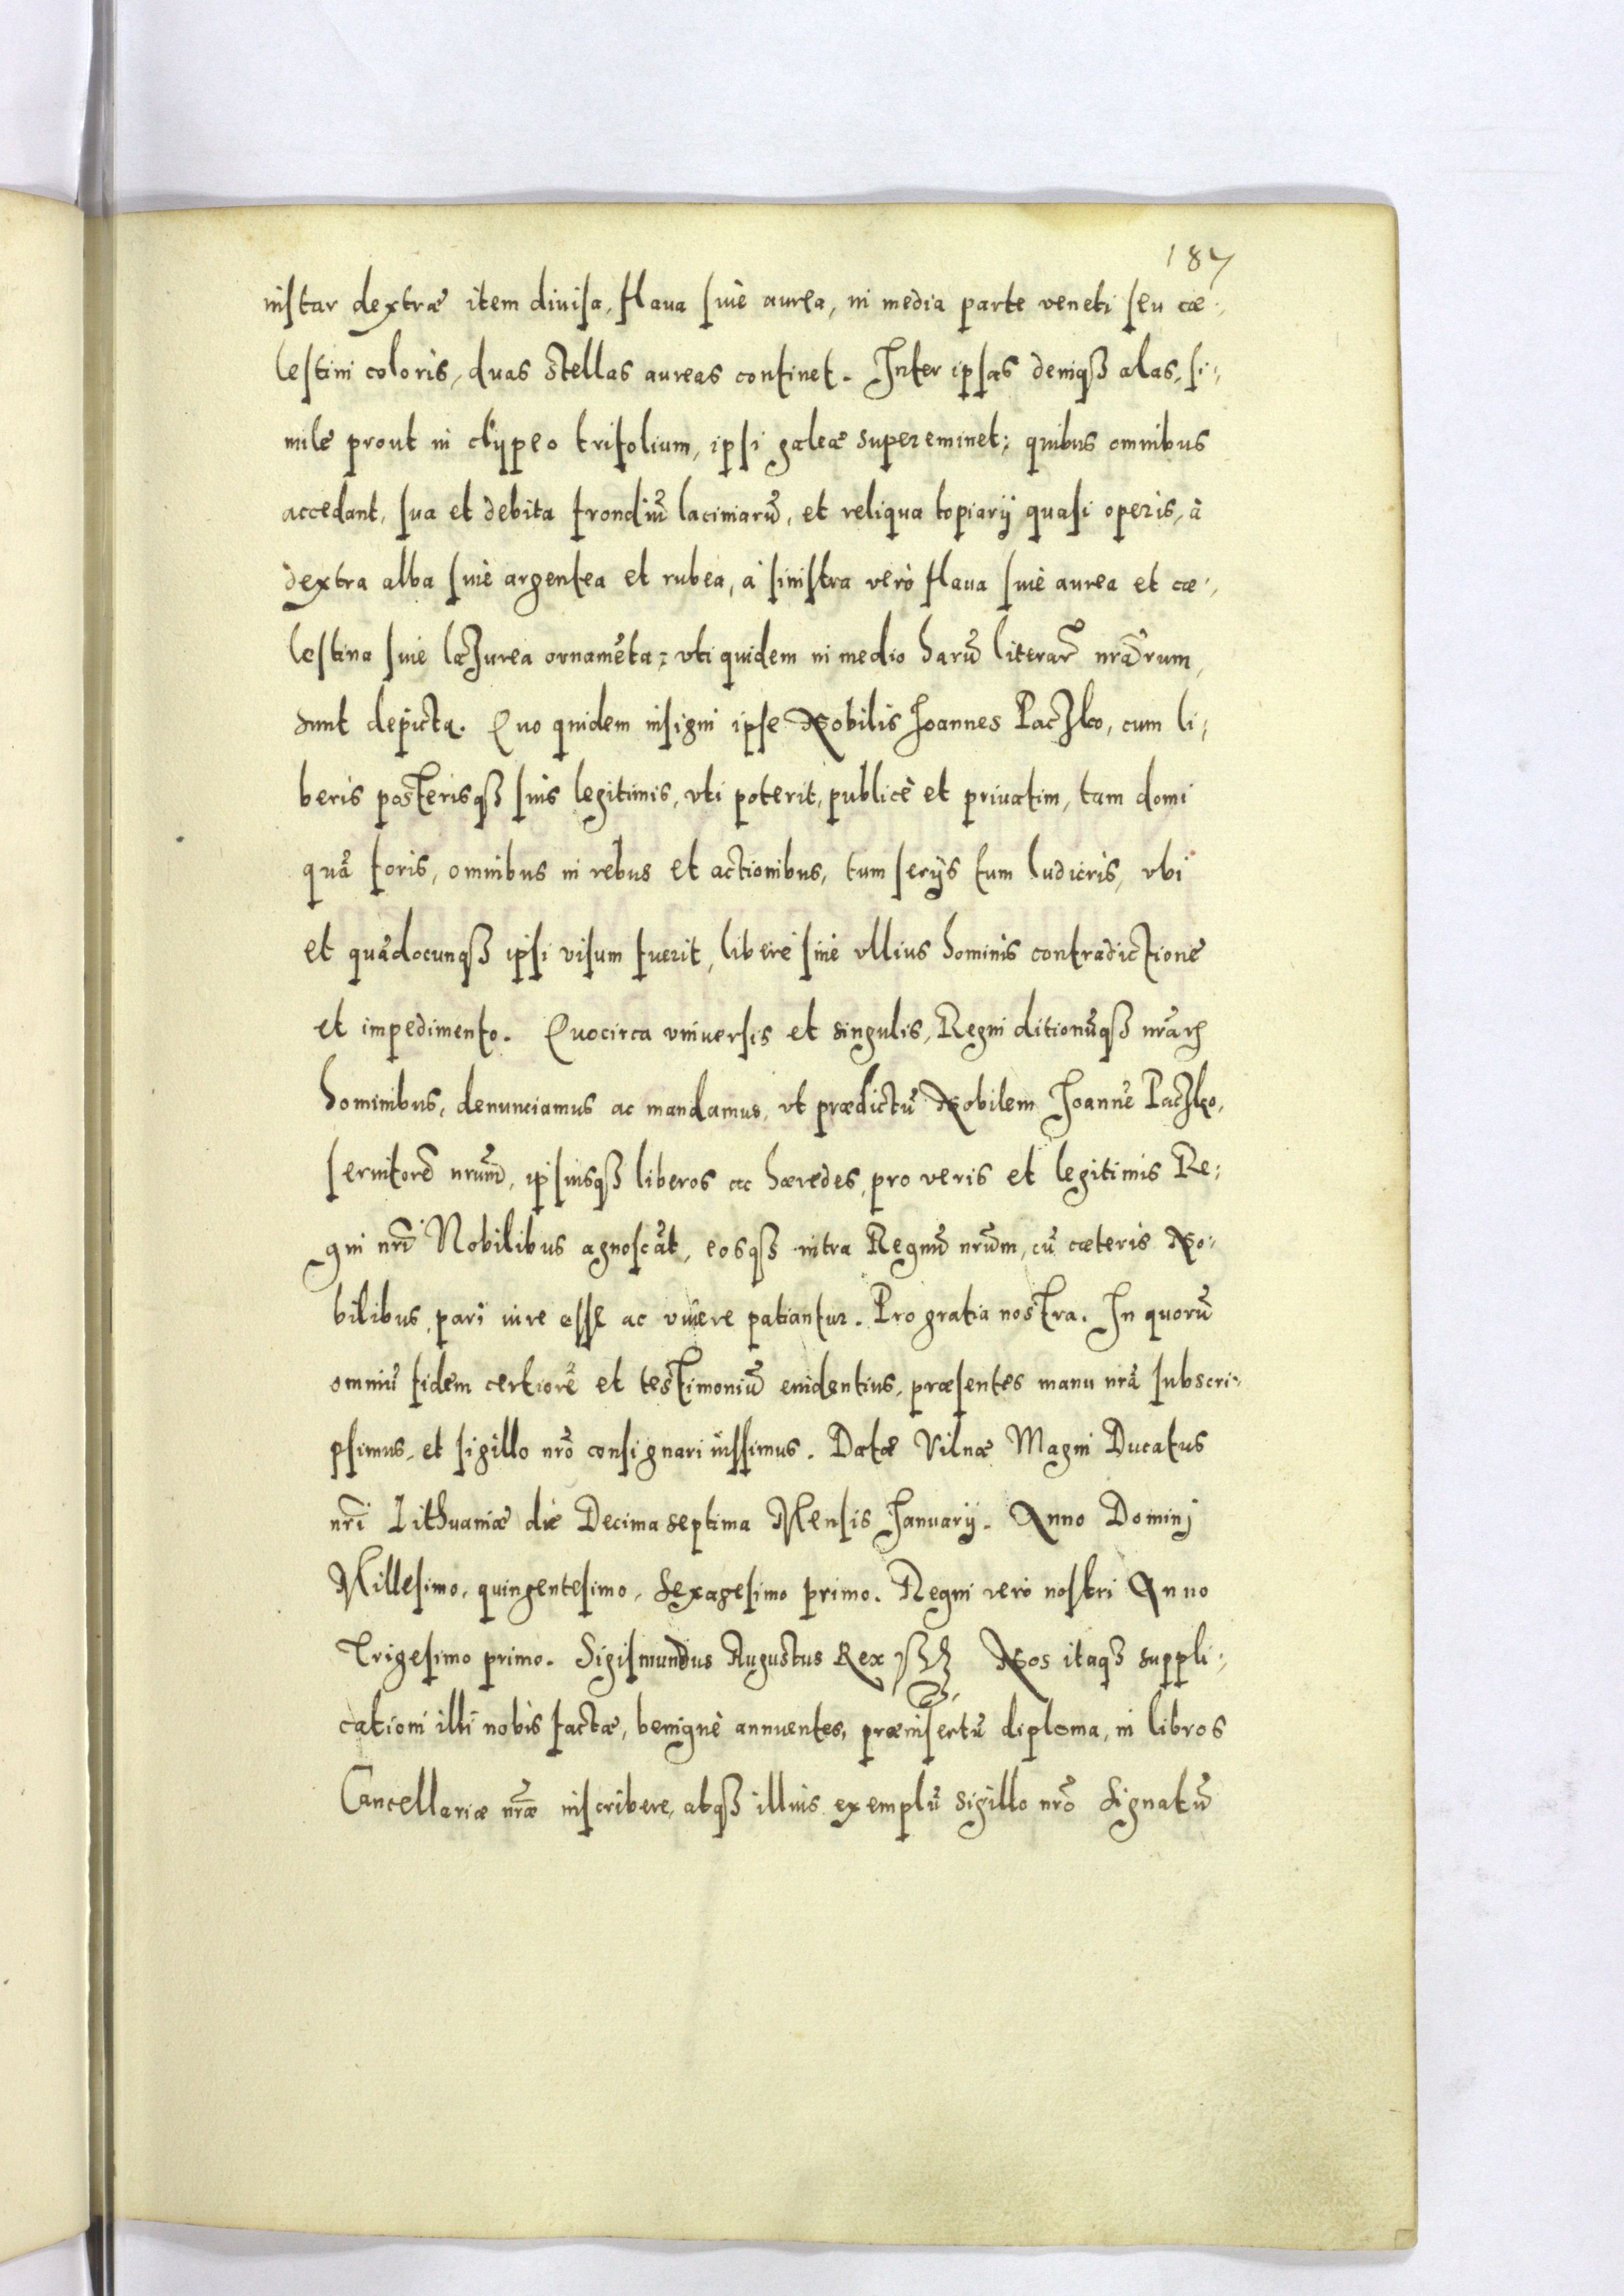 187
instar dextræ item diuisa, flaua siuè aurea, in media parte veneti seu cæ:
lestini coloris, duas stellas aureas continet. Inter ipsas deniqȝ alas, si:
mile prout in clypeo trifolium, ipsi galeæ supereminet; quibus omnibus
accedant, sua et debita frondiũ laciniarũ, et reliqua topiarij quasi operis, à
dextra alba siuè argentea et rubea, à sinistra verò flaua siuè aurea et cæ:
lestina siuè lazurea ornamẽta: vti quidem in medio harũ literar̃ nrãrum,
sunt depicta. Quo quidem insigni ipse Nobilis Joannes Paczko, cum li:
beris posterisqȝ suis legitimis, vti poterit, publicè et priuatim, tam domi
quã foris, omnibus in rebus et actionibus, tum serijs tum ludicris, vbi
et quãdocunqȝ ipsi visum fuerit, liberè sinè vllius hominis contradictione
et impedimento. Quocirca vniuersis et singulis, Regni ditionũqȝ nrãrꝝ
hominibus, denunciamus ac mandamus, vt prædictũ Nobilem Joannẽ Paczko,
seruitorẽ nrũm, ipsiusqȝ liberos ac hæredes, pro veris et legitimis Re:
gni nrĩ Nobilibus agnoscãt, eosqȝ intra Regnũ nrũm, cũ cæteris No:
bilibus, pari iure esse ac viuere patiantur. Pro gratia nostra. In quorũ
omniũ fidem certiorẽ et testimoniũ euidentius, præsentes manu nrã subscri:
psimus, et sigillo nrõ consignari iussimus. Datæ Vilnæ Magni Ducatus
nrĩ Lithuaniæ diè Decima septima Mensis Januarij. Anno Dominj
Millesimo, quingentesimo, sexagesimo primo. Regni verò nostri Anno
Trigesimo primo. Sigismundus Augustus Rex ssȝ Nos itaqȝ suppli:
cationi illi nobis factæ, benignè annuentes, præinsertũ diploma, in libros
Cancellariæ nrãe inscribere, atqȝ illius exemplũ sigillo nrõ signatũ